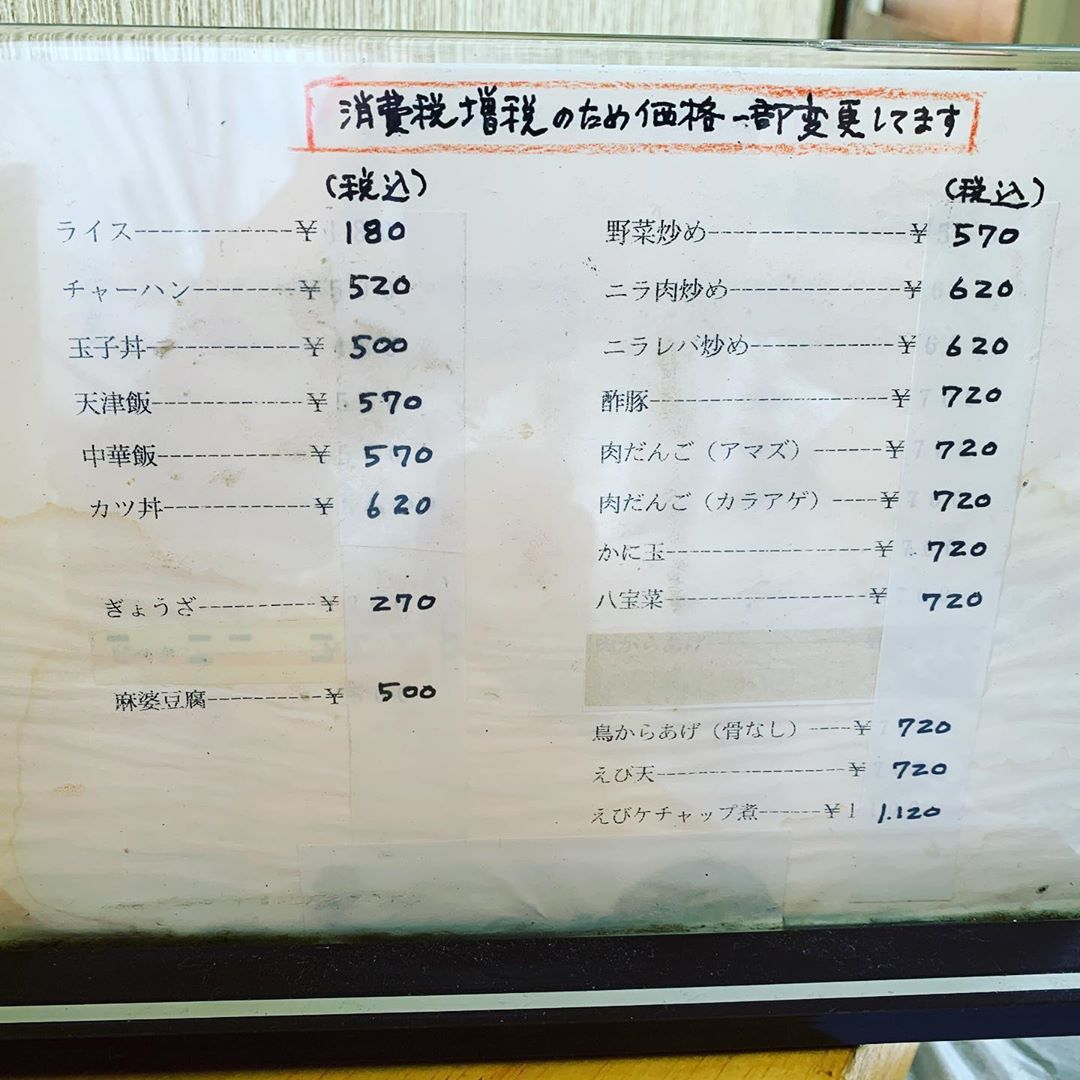 消費税増税のため価格一部変更してます
(税込)
ライス------------¥ 180
チャーハン---------¥ 520
玉子丼------------¥ 500
天津飯------------¥ 570
中華飯------------¥ 570
カツ丼------------¥ 620
ぎょうざ-----------¥ 270
麻婆豆腐----------¥ 500
(税込)
野菜炒め----------------¥ 570
ニラ肉炒め--------------¥ 620
ニラレバ炒め------------¥ 620
酢豚-------------------¥ 720
肉だんご（アマズ）------¥ 720
肉だんご（カラアゲ）-----¥ 720
かに玉-----------------¥ 720
八宝菜-----------------¥ 720
鳥からあげ（骨なし）----¥ 720
えび天-----------------¥ 720
えびケチャップ煮------¥1 1.120